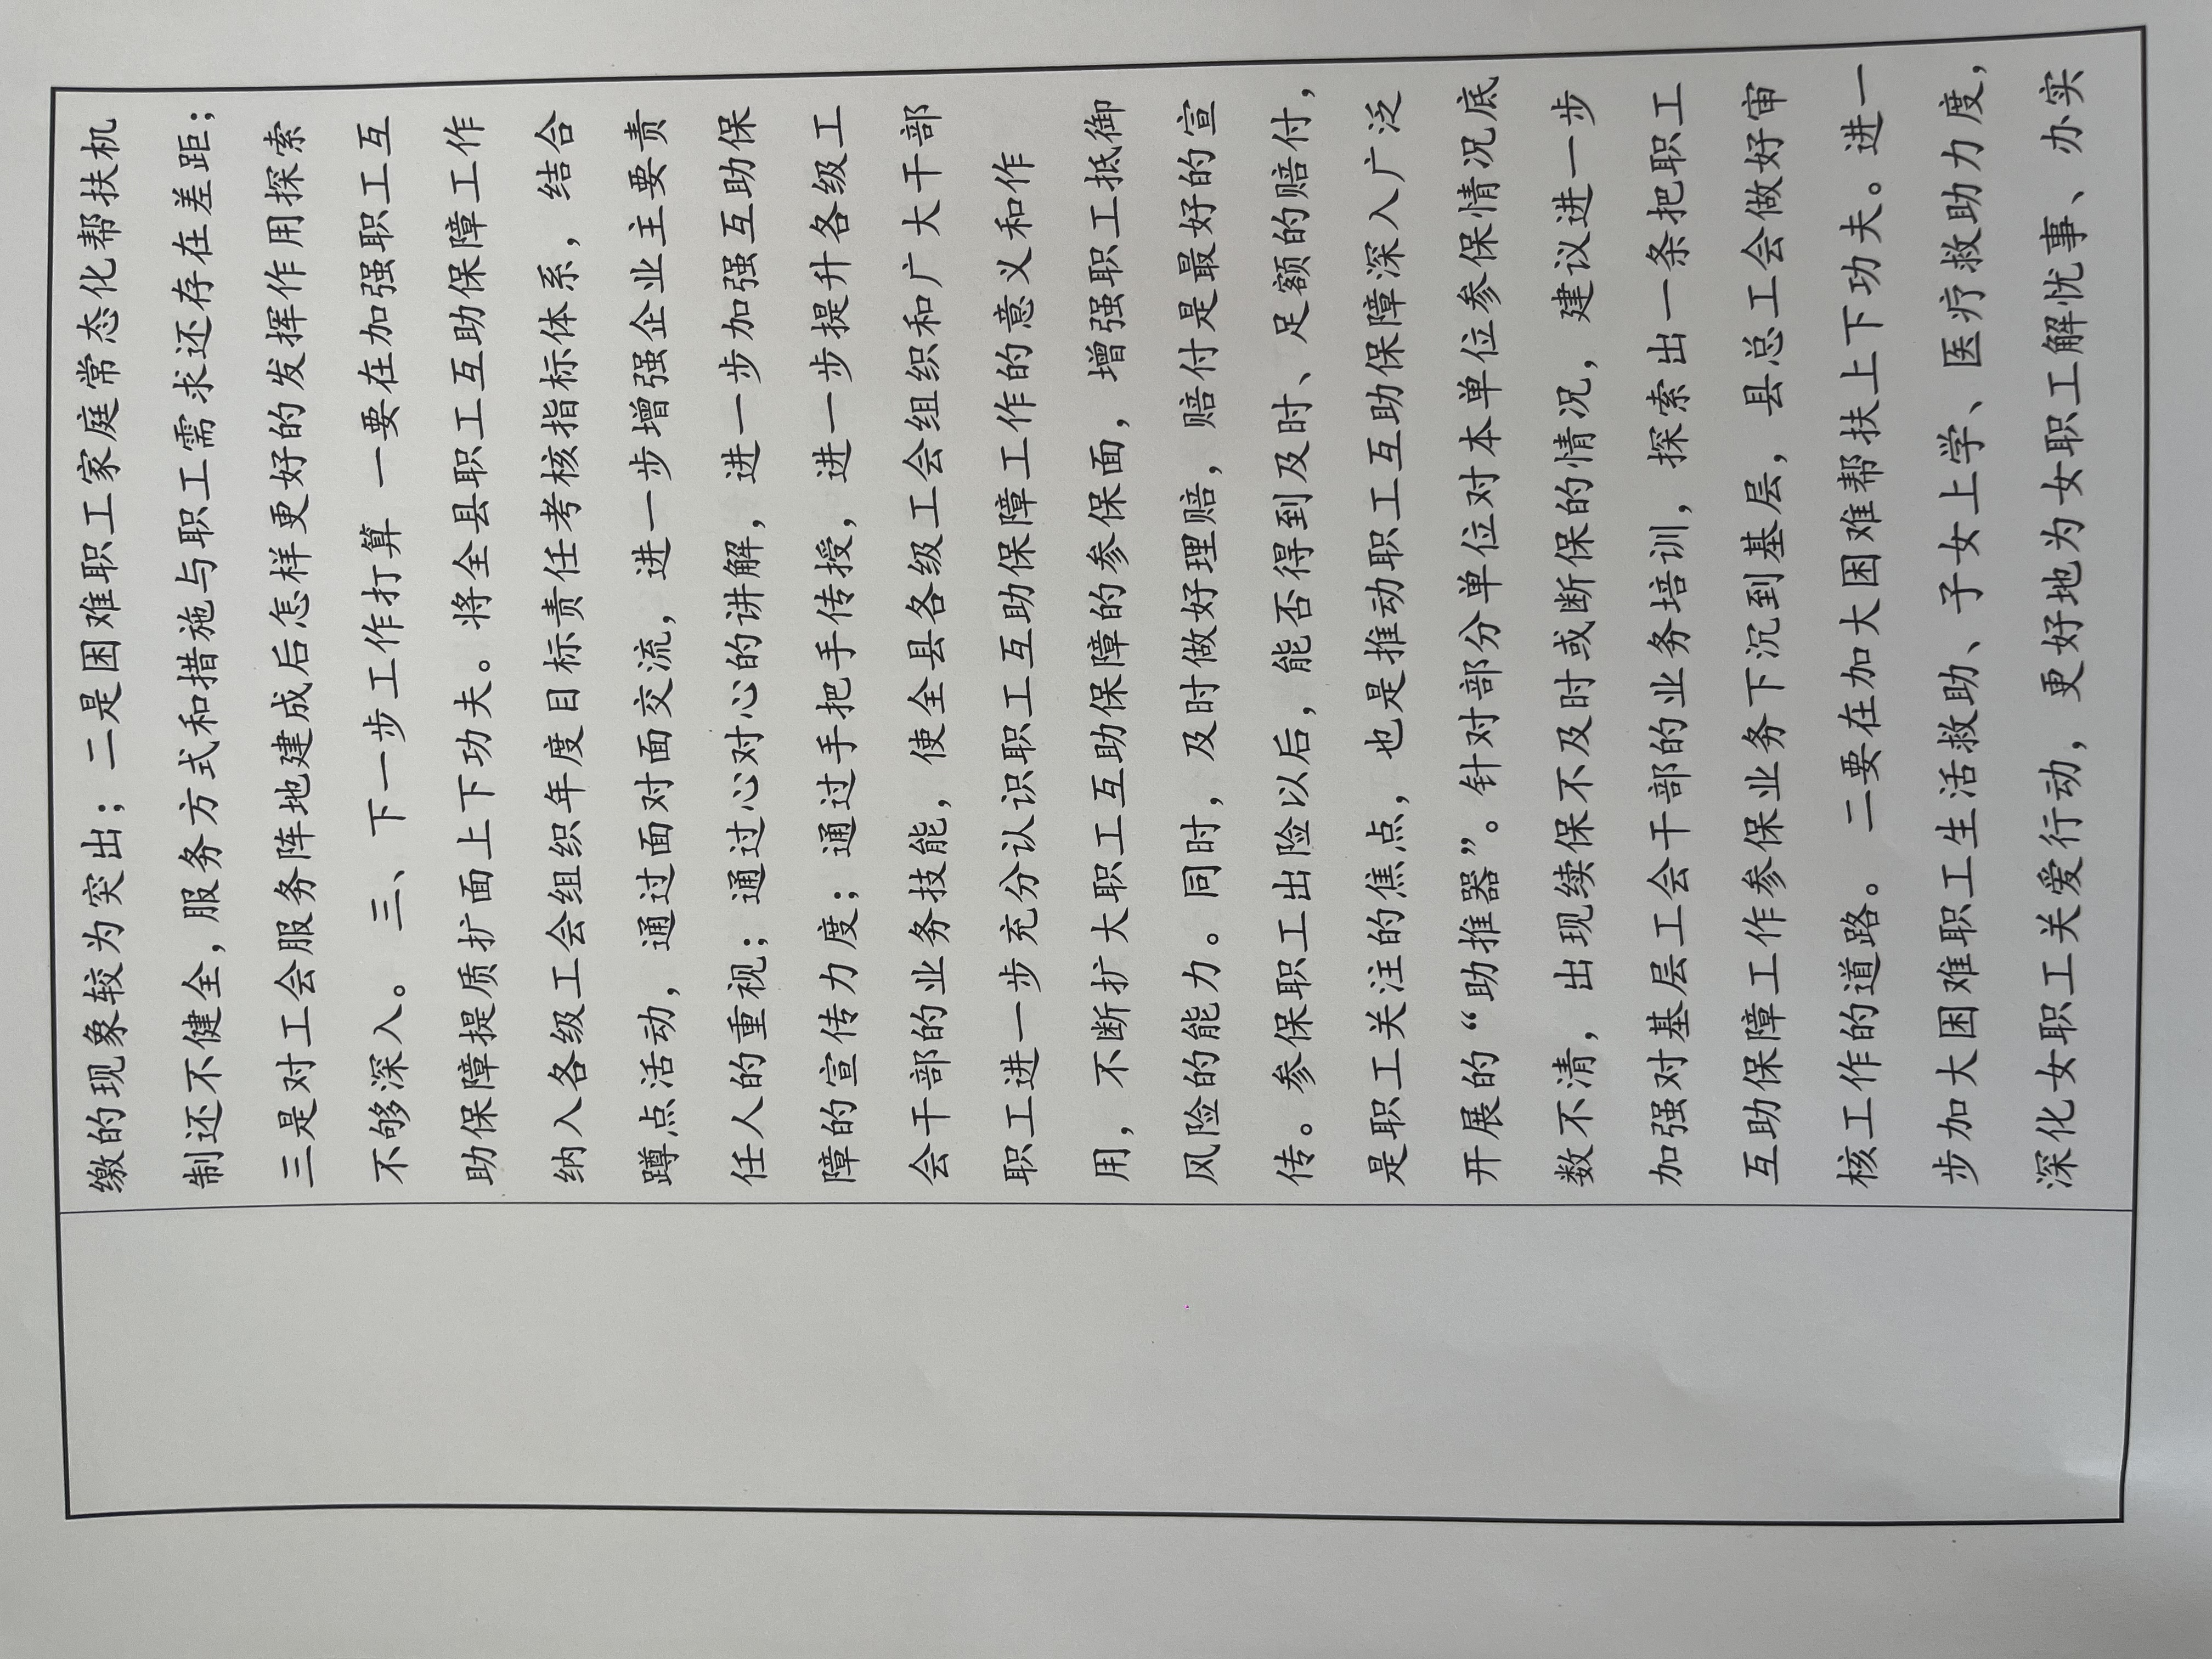 缴的现象较为突出；二是困难职工家庭常态化帮扶机
制还不健全，服务方式和措施与职工需求还存在差距；
三是对工会服务阵地建成后怎样更好的发挥作用探索
不够深入。 三、下一步工作打算 一要在加强职工互
助保障提质扩面上下功夫。将全县职工互助保障工作
纳入各级工会组织年度目标责任考核指标体系，结合
蹲点活动，通过面对面交流，进一步增强企业主要责
任人的重视；通过心对心的讲解，进一步加强互助保
障的宣传力度；通过手把手传授，进一步提升各级工
会干部的业务技能，使全县各级工会组织和广大干部
职工进一步充分认识职工互助保障工作的意义和作
用，不断扩大职工互助保障的参保面，增强职工抵御
风险的能力。同时，及时做好理赔，赔付是最好的宣
传。参保职工出险以后，能否得到及时、足额的赔付，
是职工关注的焦点，也是推动职工互助保障深入广泛
开展的“助推器”。针对部分单位对本单位参保情况底
数不清，出现续保不及时或断保的情况，建议进一步
加强对基层工会干部的业务培训，探索出一条把职工
互助保障工作参保业务下沉到基层，县总工会做好审
核工作的道路。 二要在加大困难帮扶上下功夫。进一
步加大困难职工生活救助、子女上学、医疗救助力度，
深化女职工关爱行动，更好地为女职工解忧事、办实